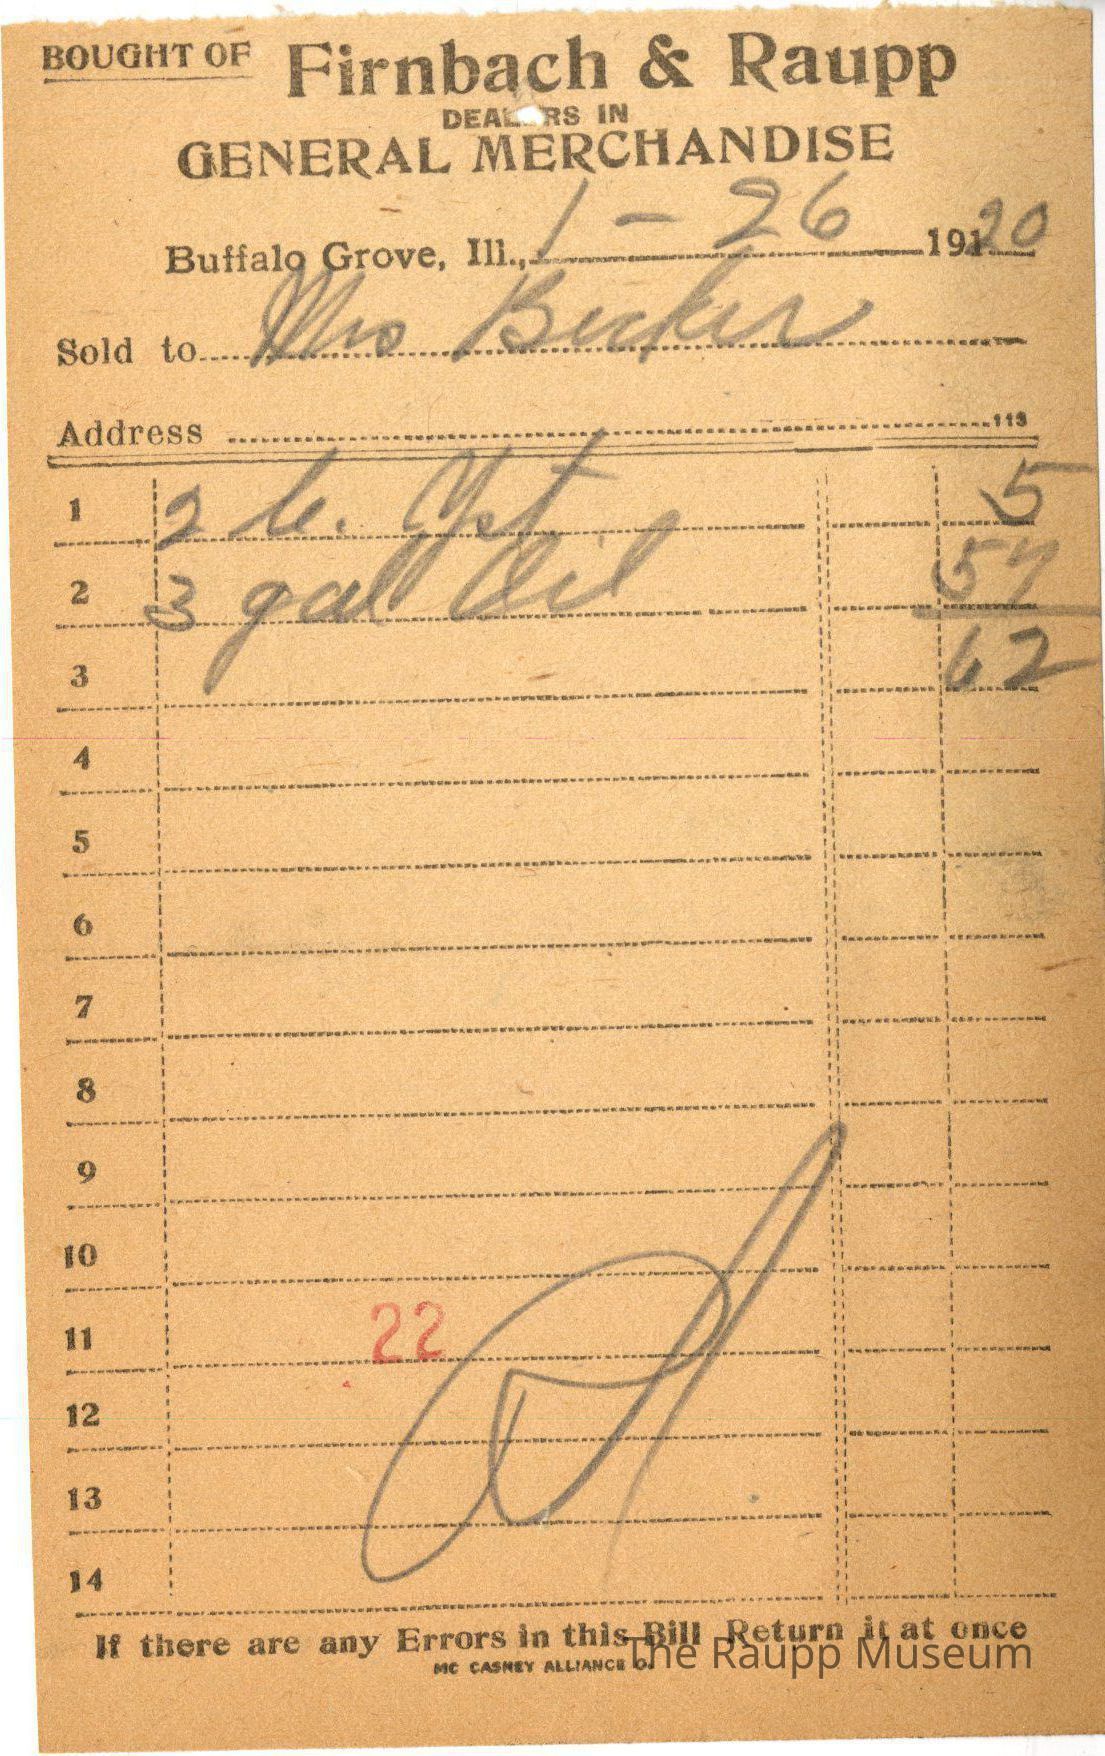 BOUGHT OF Firnbach & Raupp
DEALERS IN
GENERAL MERCHANDISE
Buffalo Grove, Ill., 1 - 26 191 20
Sold to Mrs Becker
Address 113
1 2 c. Yst 5
2 3 gal Oil 57
3 62
4
5
6
7
8
9
10
11 22
12
13
14
If there are any Errors in this Bill Return it at once
MC CASKEY ALLIANCE O.
The Raupp Museum